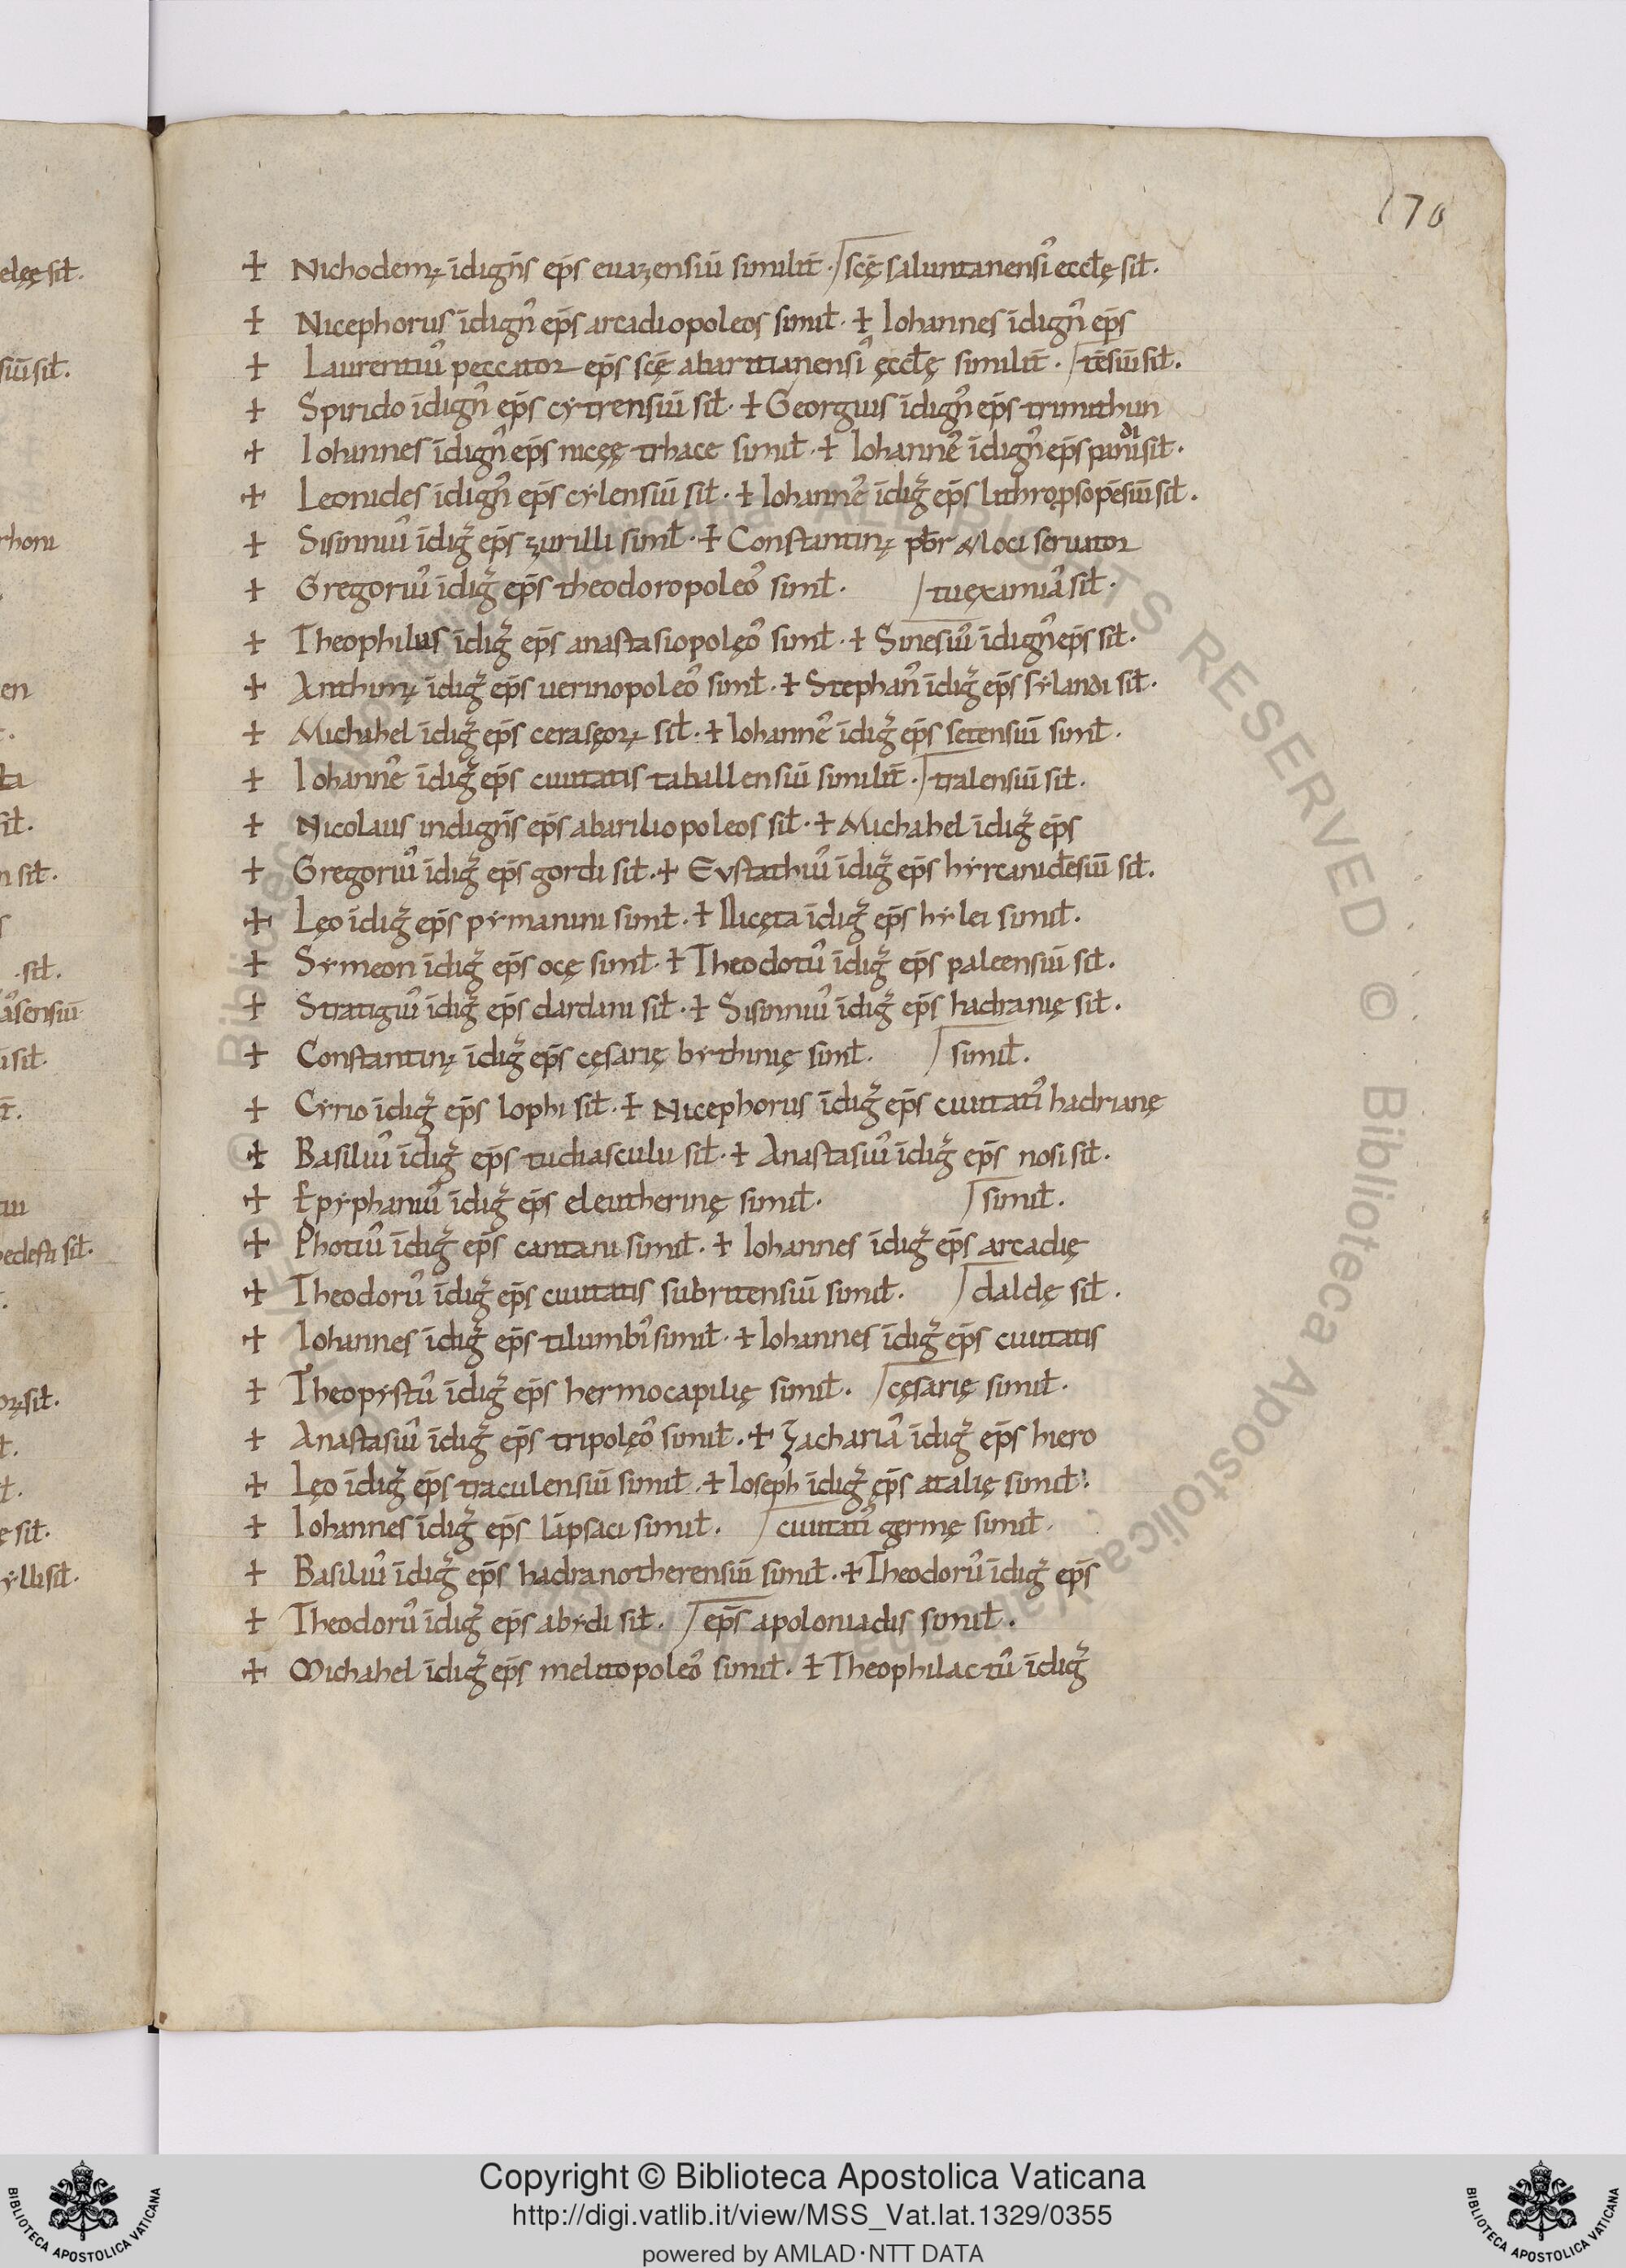 170
elęę sił.
siū sił.
rhoni
en
ta
sił.
n sił.
· sił.
āsensiū
i sił.
edesti sił.
orꝝ sił.
ę sił.
ẏlli sił.
+ Nichodemꝰ īdign̄s ep̄s euazensiū similit̄ · scę̄ saluntanensiᷤ eccłę sił.
+ Nicephorus īdignᷤ ep̄s arcadiopoleos simił · + Iohannes īdignᷤ ep̄s
+ Laurentiuᷤ peccator ep̄s scę̄ abartitanensiᷤ ęccłę similit̄ · tēsiū sił.
+ Spirido īdignᷤ ep̄s cẏtrensiū sił · + Georgius īdignᷤ ep̄s trimithun
+ Iohannes īdignᷤ ep̄s nicęę trhace simił · + Iohanneᷤ īdignᷤ ep̄s panidi sił ·
+ Leonides īdignᷤ ep̄s cẏlensiū sił · + Iohanneᷤ īdig ep̄s luthrǫpsopēsiū sił .
+ Sisinniuᷤ īdig ep̄s zurilli simł · + Constantinꝰ pƀr & loci seruator
+ Gregoriuᷤ īdig ep̄s theodoropoleoᷤ simł · tuęximiaᷤ sił ·
+ Theophilus īdig ep̄s anastasiopolęoᷤ simł · + Sinesiuᷤ īdignᷤ ep̄s sił ·
+ Anthimꝰ īdig ep̄s uerinopoleoᷤ simł · + Stephanᷤ īdig ep̄s sẏlandi sił ·
+ Michahel īdig ep̄s cerasęorꝝ sił · + Iohanneᷤ īdig ep̄s setensiū simł ·
+ Iohanneᷤ īdig ep̄s ciuitatis taballensiū similit̄ · tralensiū sił ·
+ Nicolaus indign̄s ep̄s abariliopoleos sił · + Michahel īdig ep̄s
+ Gregoriuᷤ īdig ep̄s gordi sił · + Eustathiuᷤ īdig ep̄s hẏrcanidēsiū sił .
+ Lęo īdig ep̄s pẏmanini simł · + Nicęta īdig ep̄s hẏlei simił ·
+ Sẏmeon īdig ep̄s ocę simł · + Theodotuᷤ īdig ep̄s paleensiū sił .
+ Stratigiuᷤ īdig ep̄s dardani sił · + Sisinniuᷤ īdig ep̄s hadranię sił .
+ Constantinꝰ īdig ep̄s cęsarię bẏthinię simł · simił .
+ Cẏrio īdig ep̄s lophi sił · + Nicephorus īdig ep̄s ciuitatiᷤ hadrianę
+ Basiliuᷤ īdig ep̄s tudiasculu sił · + Anastasiuᷤ īdig ep̄s nosi sił ·
+ Epẏphaniuᷤ īdig ep̄s eleutherinę simił · simił .
+ Photiuᷤ īdig ep̄s cantani simił · + Iohannes īdig ep̄s arcadię
+ Theodoruᷤ īdig ep̄s ciuitatis subritensiū simił . daldę sił .
+ Iohannes īdig ep̄s tilumbiᷤ simił · + Iohannes īdig ep̄s ciuitatis
+ Theopẏstuᷤ īdig ep̄s hermocapilię simił . cęsarię simił .
+ Anastasiuᷤ īdig ep̄s tripolęoᷤ simił . + Zachariaᷤ īdig ep̄s hiero
+ Lęo īdig ep̄s traculensiū simił . + Ioseph īdig ep̄s atalię simił ·
+ Iohannes īdig ep̄s lāpsaci simił . ciuitatiᷤ germę simił .
+ Basiliuᷤ īdig ep̄s hadranotherensiū simił . + Theodoruᷤ īdig ep̄s
+ Theodoruᷤ īdig ep̄s abẏdi sił . ep̄s apoloniadis simił .
+ Michahel īdig ep̄s melitopoleoᷤ simił . + Theophilactuᷤ īdig
© Biblioteca Apostolica Vaticana ALL RIGHTS RESERVED © Biblioteca Apostolica Vaticana ALL RIGHTS RESERVED
Copyright © Biblioteca Apostolica Vaticana
http://digi.vatlib.it/view/MSS_Vat.lat.1329/0355
powered by AMLAD·NTT DATA
BIBLIOTECA APOSTOLICA VATICANA
BIBLIOTECA APOSTOLICA VATICANA